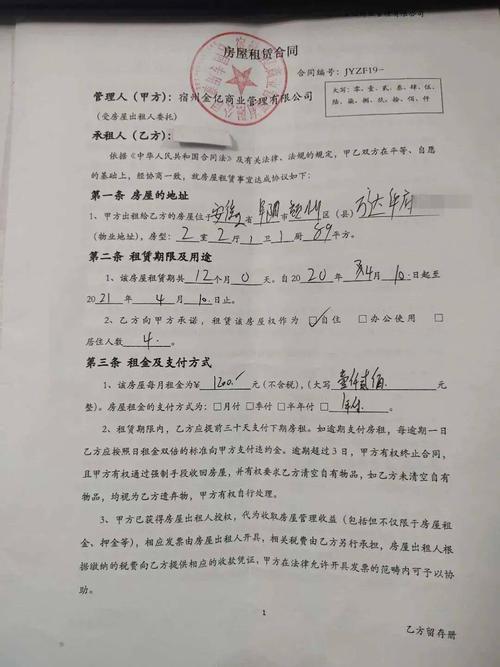 房屋租赁合同
合同编号：JYZF19-
大写：零、壹、贰、叁、肆、伍、
陆、柒、捌、玖、拾、佰、仟
管理人（甲方）：宿州金亿商业管理有限公司
（受房屋出租人委托）
承租人（乙方）：
依据《中华人民共和国合同法》及有关法律、法规的规定，甲乙双方在平等、自愿
的基础上，经协商一致，就房屋租赁事宜达成协议如下：
第一条 房屋的地址
1、甲方出租给乙方的房屋位于安徽省阜阳市颍州区（县）
（物业地址），房型：2室2厅1卫1厨89平方。
第二条 租赁期限及用途
1、该房屋租赁期共12个月0天。自2020年4月10日起至
2021年4月10日止。
2、乙方向甲方承诺，租赁该房屋权作为☑自住 □办公使用 □
居住人数4。
第三条 租金及支付方式
1、该房屋每月租金为¥1200.-元（不含税），（大写壹仟贰佰元
整）。房屋租金的支付方式为：□月付 □季付 □半年付 □年付。
2、租赁期限内，乙方应提前三十天支付下期房租，每逾期一日
乙方应按照日租金双倍的标准向甲方支付违约金。逾期超过3日，甲方有权终止合同，
且甲方有权通过强制手段收回房屋，并有权要求乙方清空自有物品，如乙方未清空自有
物品，均视为乙方遗弃物，甲方有权自行处理。
3、甲方已获得房屋出租人授权，代为收取房屋管理收益（包括但不仅限于房屋租
金、押金等），相应发票由房屋出租人开具，相关税费由乙方另行承担，房屋出租人根
据缴纳的税费向乙方提供相应的收款凭证，甲方在法律允许开具发票的范畴内可予以协
助。
1
乙方留存册